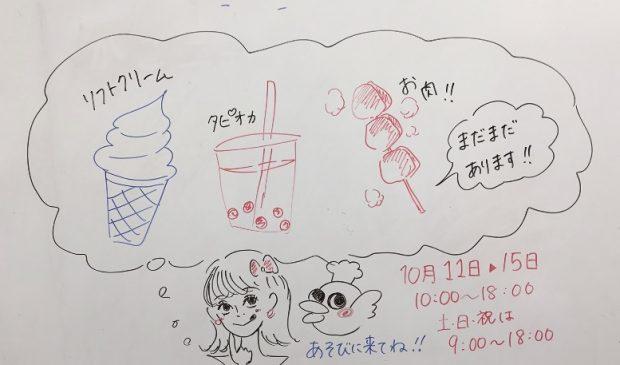 ソフトクリーム
タピオカ
お肉!!
まだまだ
あります!!
10月11日▶15日
10:00〜18:00
土・日・祝は
9:00〜18:00
あそびに来てね!!